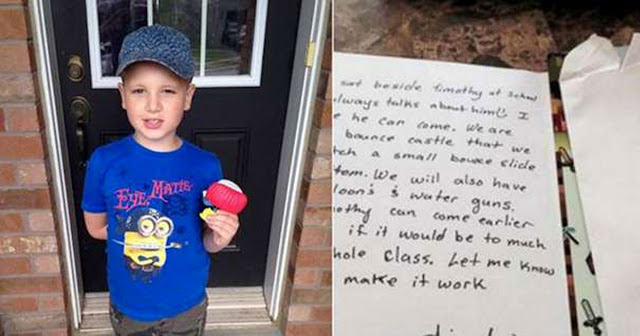 EYE MATIE
sat beside timothy at school
always talks about him! I
he can come. We are
bounce castle that we
a small bounce slide
We will also have
& water guns.
can come earlier
if it would be to much
class. Let me know
make it work